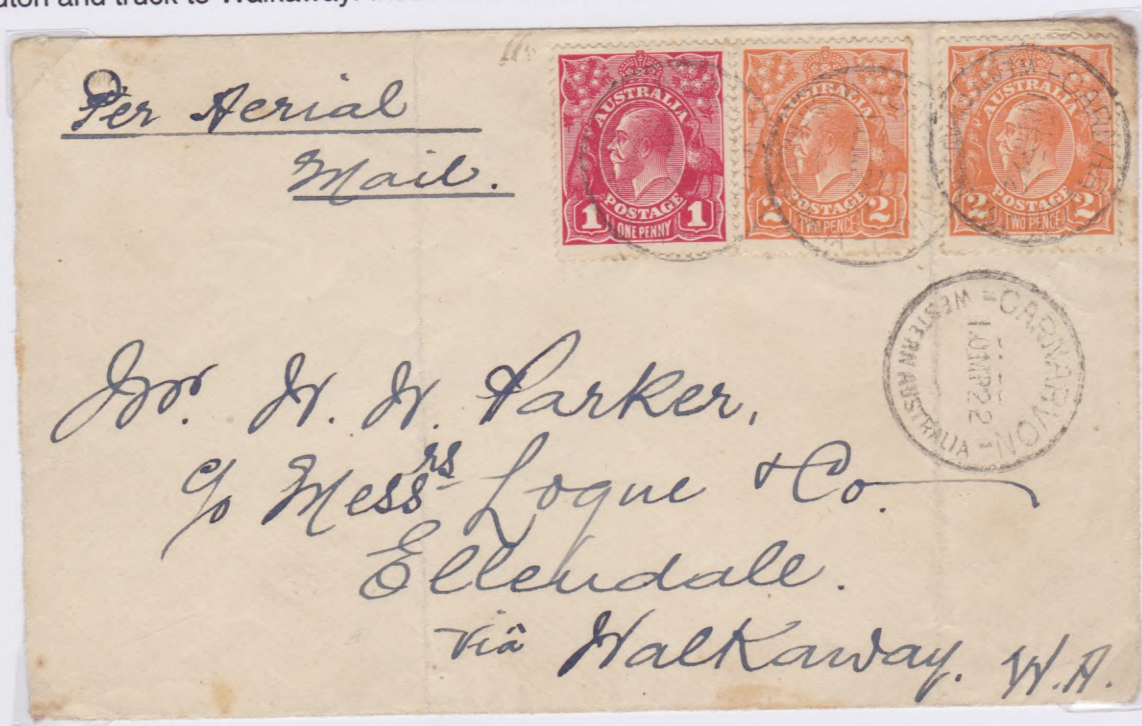 and truck to Walkaway.
Per Aerial
Mail.
AUSTRALIA
POSTAGE
1 1
ONE PENNY
AUSTRALIA
POSTAGE
2 2
TWO PENCE
AUSTRALIA
POSTAGE
2 2
TWO PENCE
CARNARVON
WESTERN AUSTRALIA
Mr. W. W. Parker,
c/o Messrs Logue & Co.
Ellendale.
Via Walkaway. W.A.